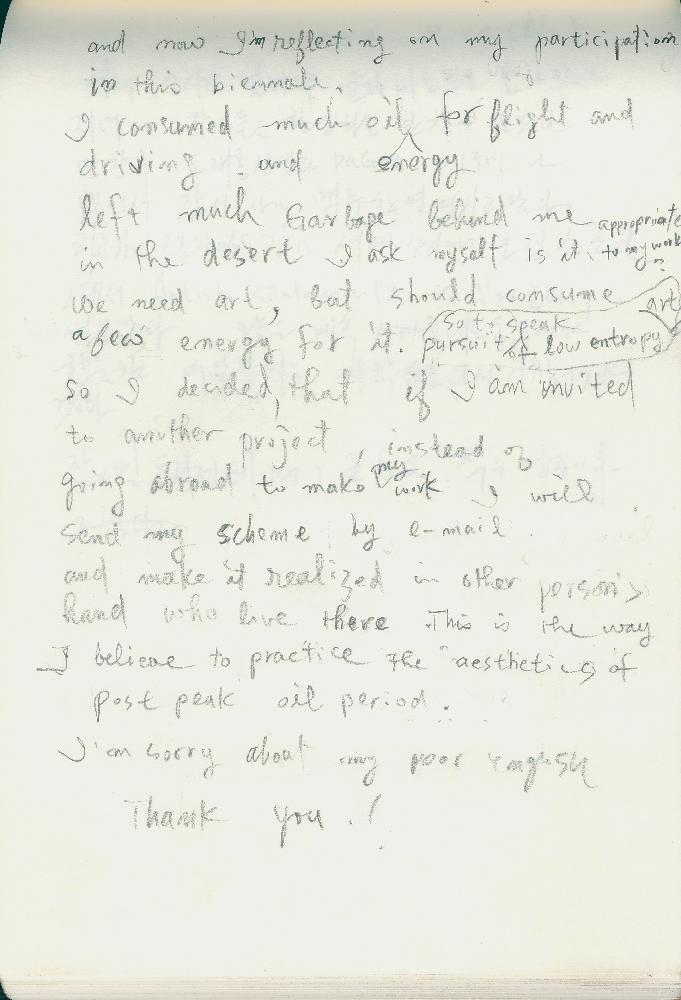 and now I'm reflecting on my participation
in this biennale.
I consumed much oil for flight and
driving and energy
left much Garbage behind me appropriate
in the desert I ask myself is it to my work?
we need art, but should consume art
a few energy for it. so to speak
pursuit of low entropy
so I decided, that if I am invited
to another project, instead of
going abroad to make my work I will
send my scheme by e-mail
and make it realized in other person's
hand who live there. This is the way
I believe to practice the aesthetics of
post peak oil period.
I'm sorry about my poor english
Thank you!